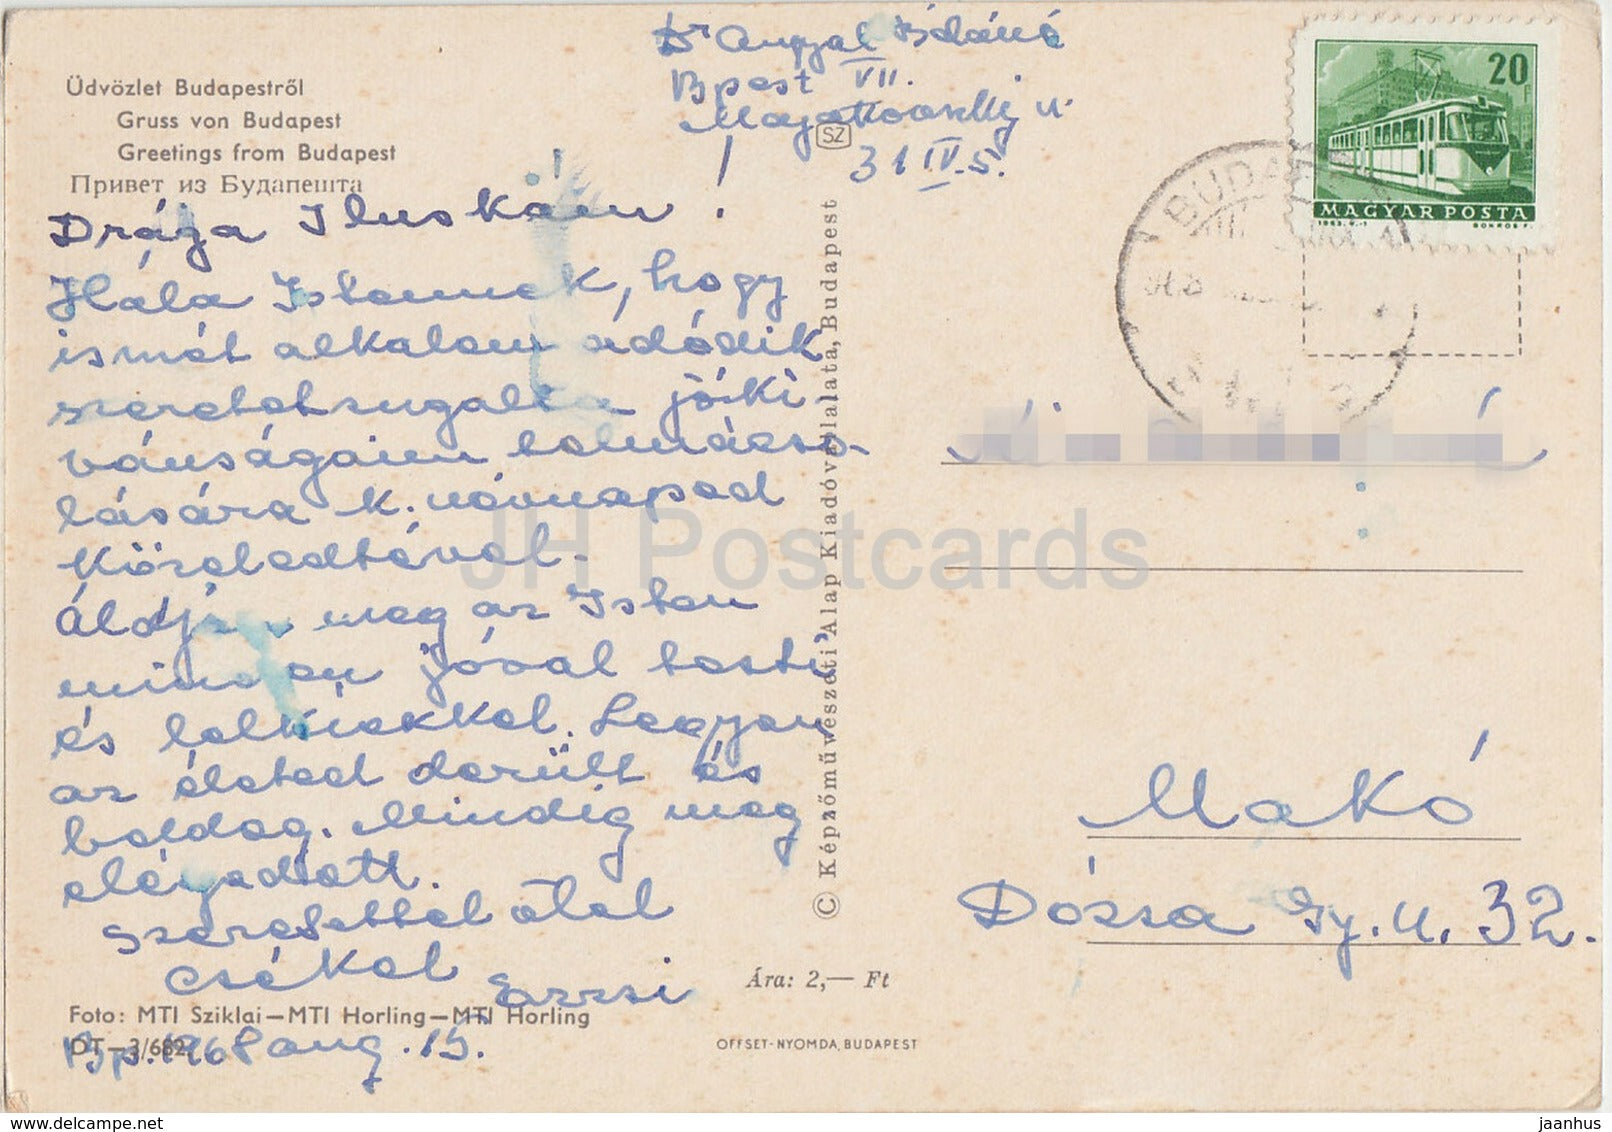 Üdvözlet Budapestről
Gruss von Budapest
Greetings from Budapest
Привет из Будапешта
Dr Angyal
Bpest VII.
u.
31 IV. 5.
SZ
20
MAGYAR POSTA
BUDAPEST
Drága Iluskám!
Hála Istennek, hogy
ismét alkalom adódik
szeretetsugallta jókí
vánságaim tolmácso-
lására k. névnapod
közeledtével.
Áldjon meg az Isten
minden jóval testi
és lelkiekkel. Legyen
az életed derült és
boldog. Mindig meg
elégedett.
Szeretettel ölel
csókol Erzsi
Bp. 1968 aug. 15.
Foto: MTI Sziklai—MTI Horling—MTI Horling
© Képzőművészeti Alap Kiadóvállalata, Budapest
Makó
Dózsa Gy. u. 32.
Ára: 2,— Ft
OFFSET-NYOMDA, BUDAPEST
JH Postcards
www.delcampe.net
jaanhus